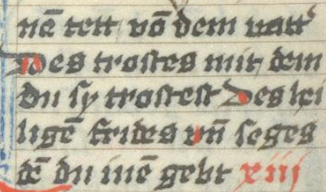 nē tett vō dem vatt'
Des trostes mit dem
du sy trostest Des hei
ligē frides vn̄ seges
dē du inē gebt xiij